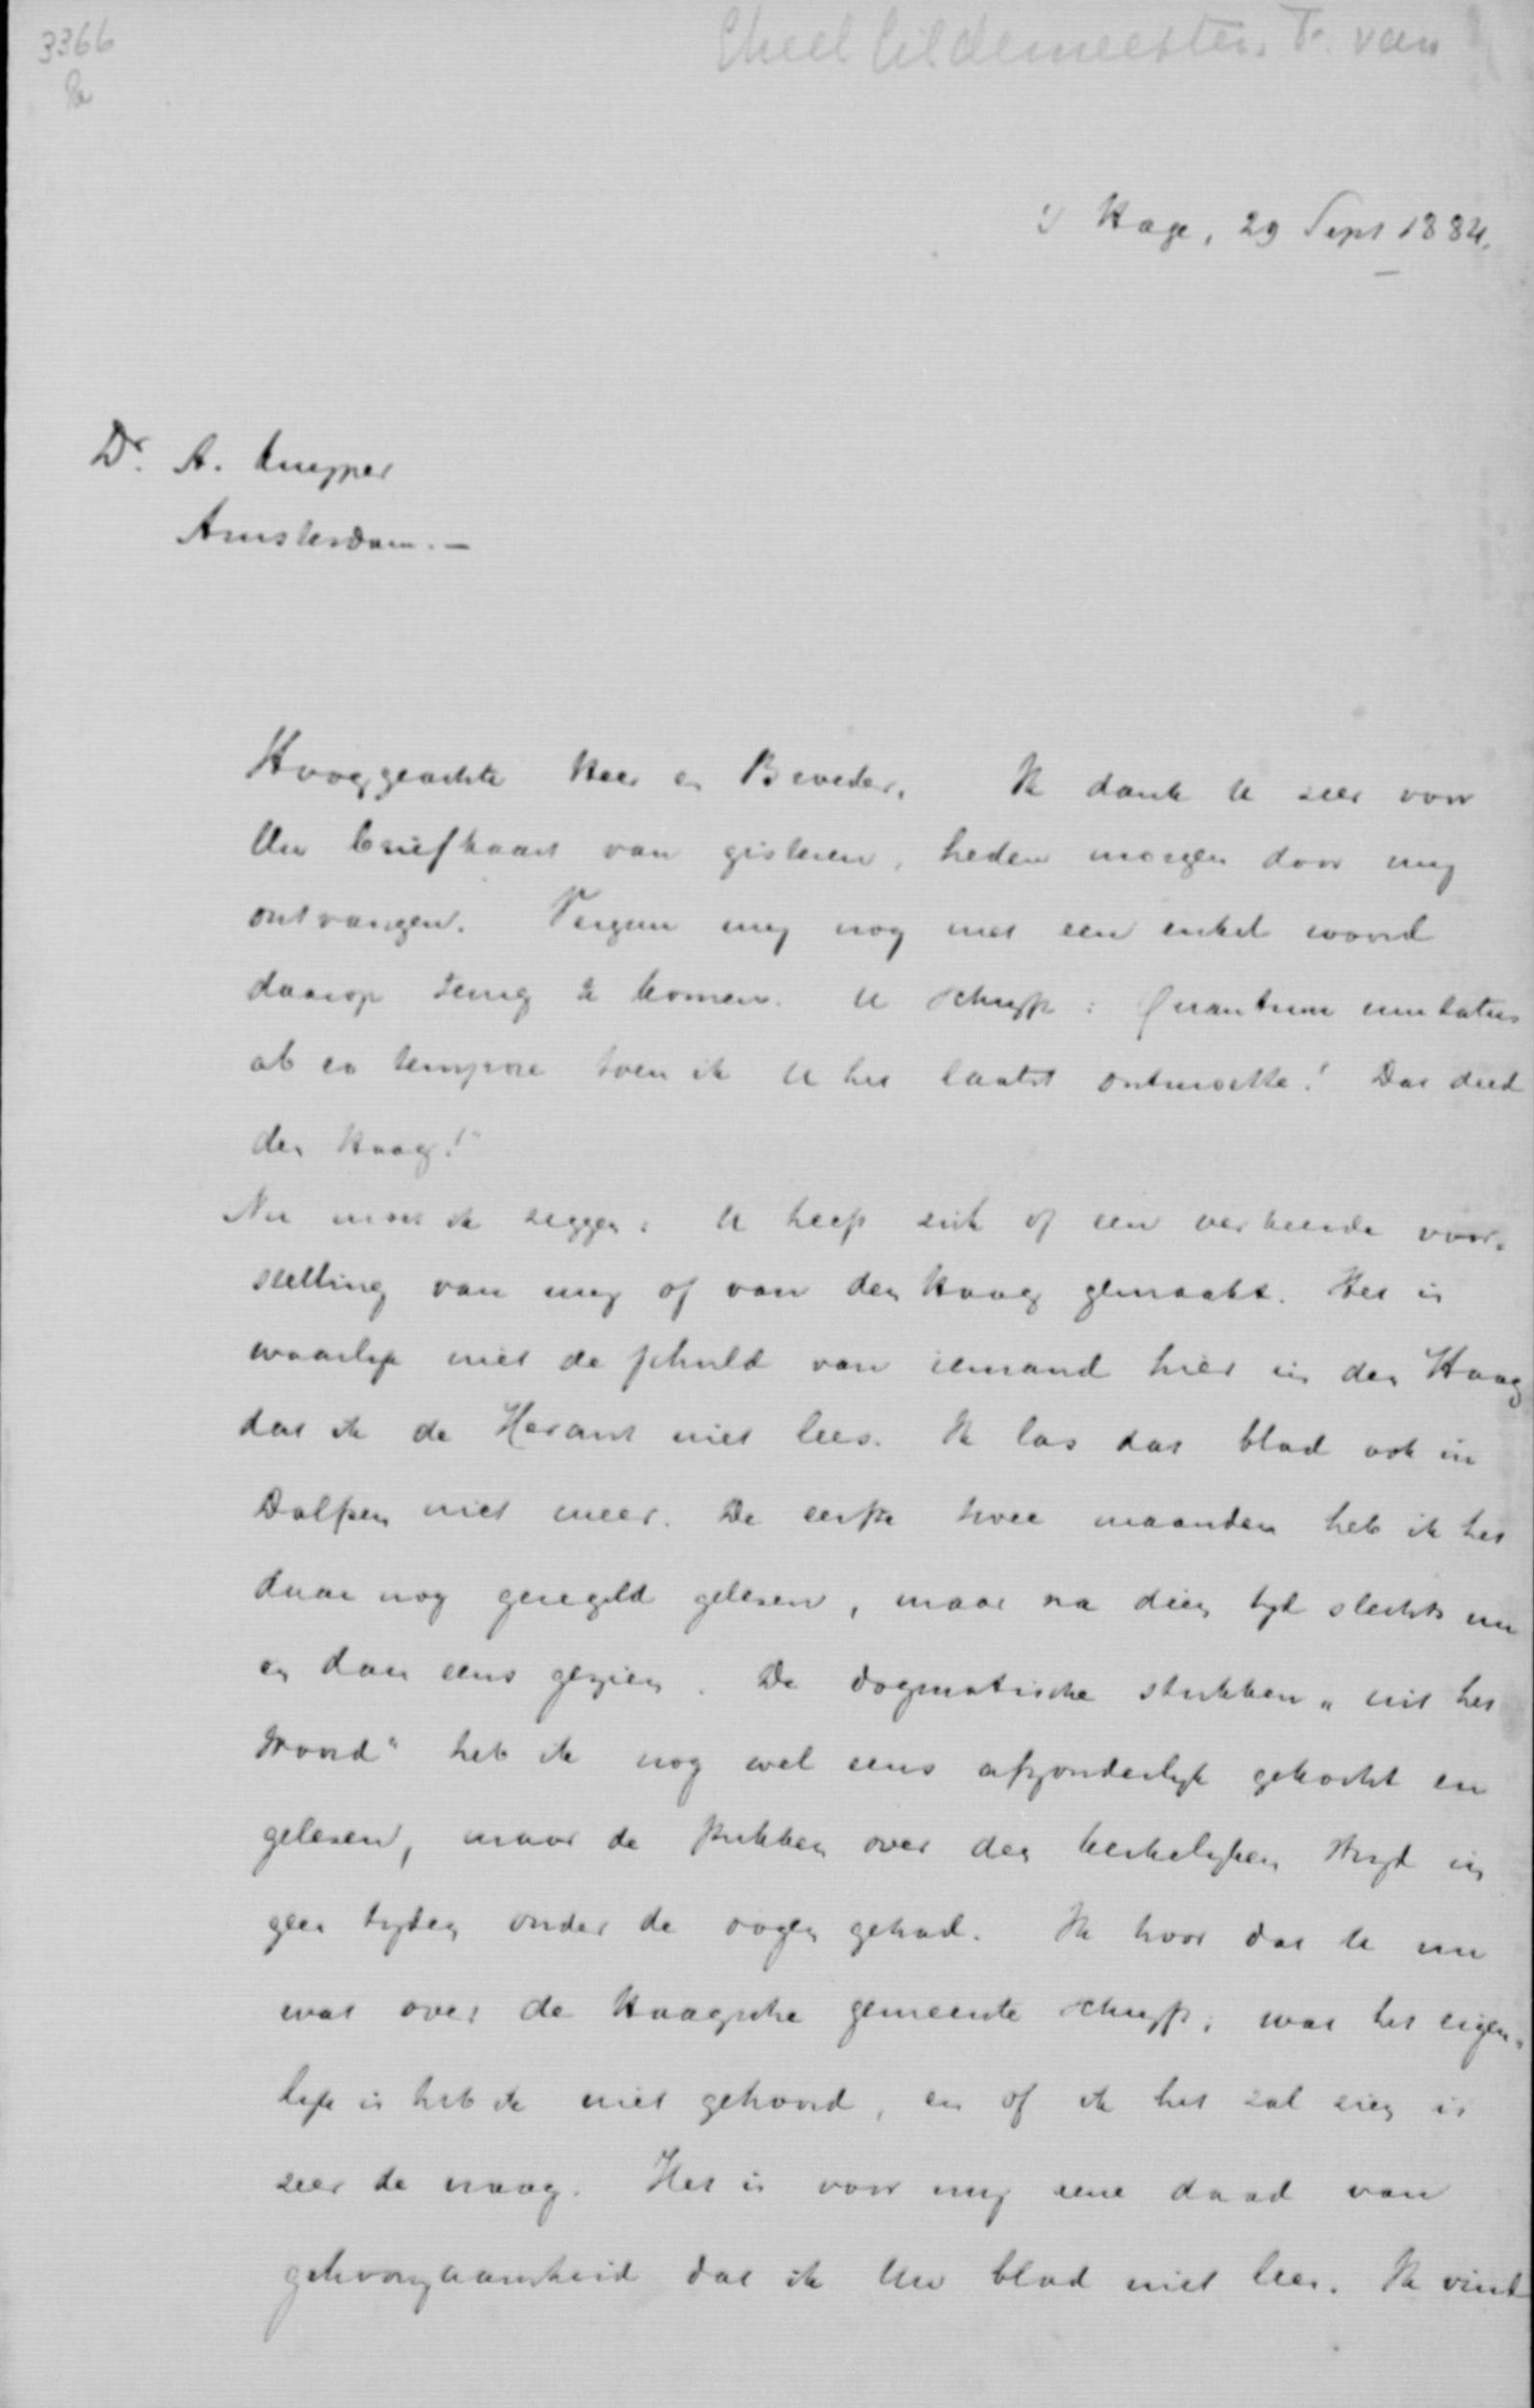 3366
Cheel Gildemeester, F. van
's Hage, 29 Sept 1884.
Dr. A. Kuyper
Amsterdam. —
Hooggeachte Heer en Broeder. Ik dank U zeer voor
Uw briefkaart van gisteren, heden morgen door mij
ontvangen. Vergun mij nog met een enkel woord
daarop terug te komen. U schrijft: Quantum mutatus
ab eo tempore toen ik U het laatst ontmoette! Dat deed
den Haag!"
Nu moet ik zeggen: U heeft zich of een verkeerde voor-
stelling van mij of van den Haag gemaakt. Het is
waarlijk niet de schuld van iemand hier in den Haag
dat ik de Heraut niet lees. Ik las dat blad ook in
Dalfsen niet meer. De eerste twee maanden heb ik het
daar nog geregeld gelezen, maar na dien tijd slechts nu
en dan eens gezien. De dogmatische stukken „uit het
Woord" heb ik nog wel eens afzonderlijk gekocht en
gelezen, maar de stukken over den kerkelijken strijd in
geen tijden onder de oogen gehad. Ik hoor dat U nu
wat over de Haagsche gemeente schrijft; wat het eigen-
lijk is heb ik niet gehoord, en of ik het zal zien is
zeer de vraag. Het is voor mij eene daad van
gehoorzaamheid dat ik Uw blad niet lees. Ik vind